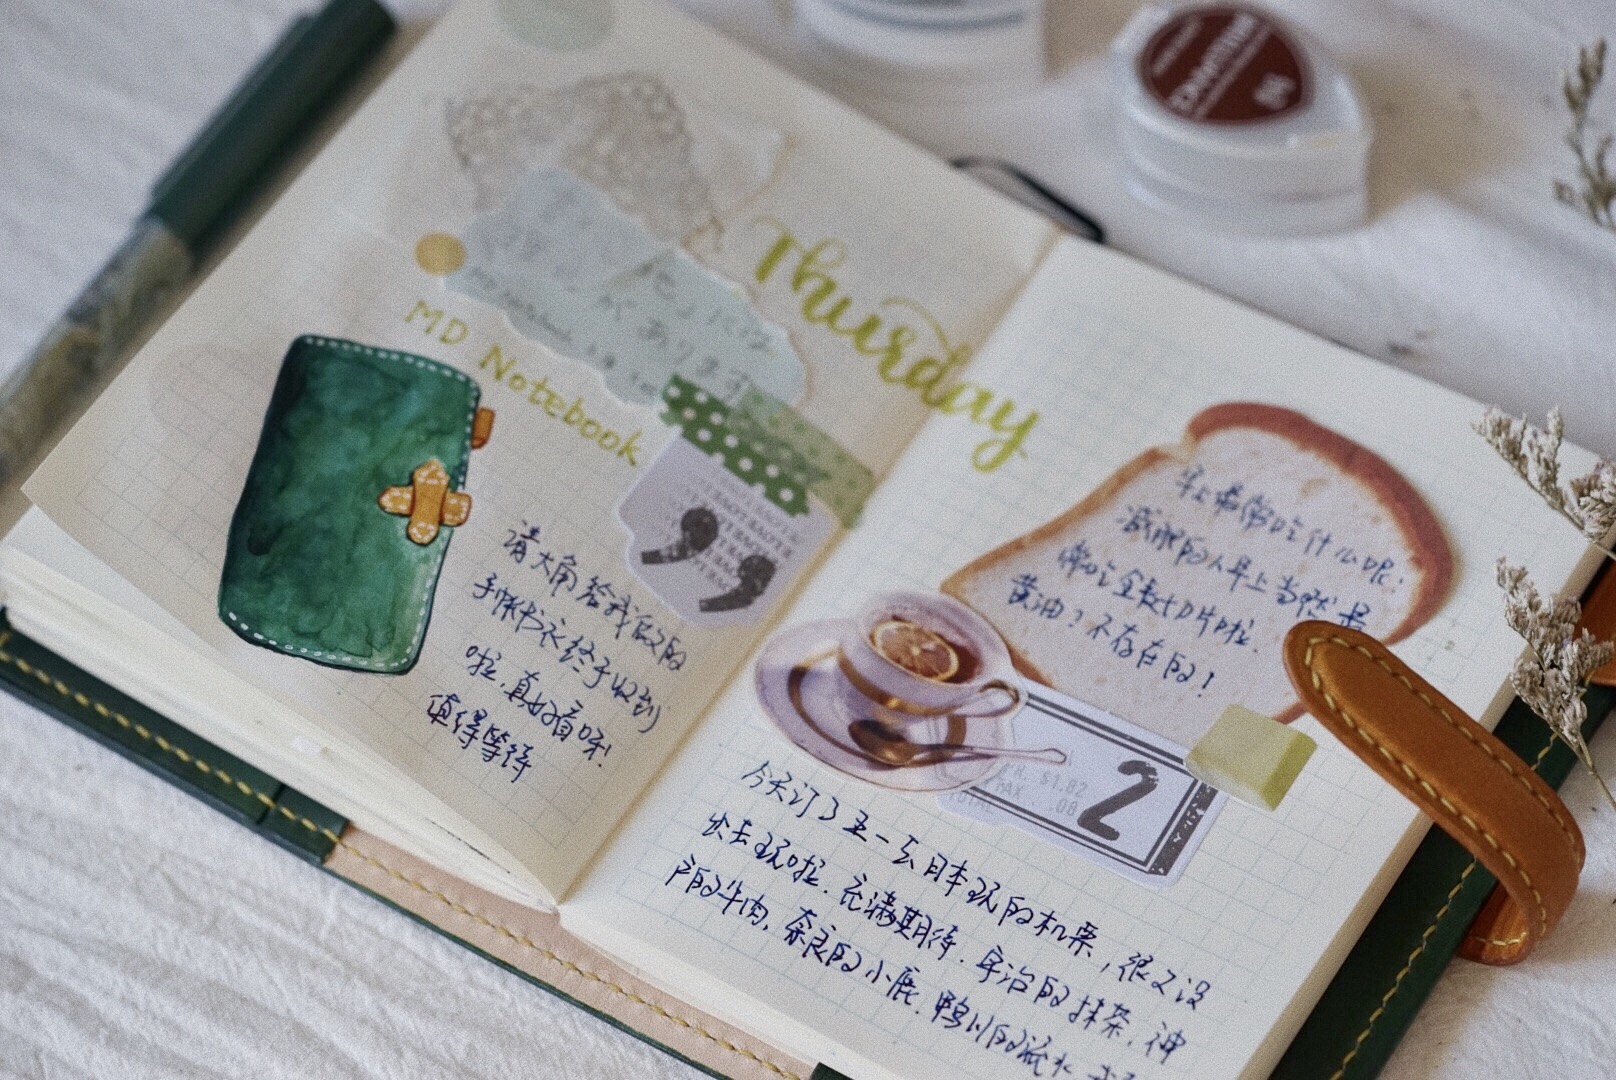 Thursday
MD Notebook
请大角给我做的
手帐书衣终于收到
啦,真好看呀!
值得等待
早上通常吃什么呢:
减肥的人早上当然是
黄油?不存在的!
2
$1.82
.08
TOTAL
今天订了五一去日本玩的机票,很久没
出去玩啦.充满期待.宇治的抹茶,神
户的牛肉,奈良的小鹿.鸭川的流水